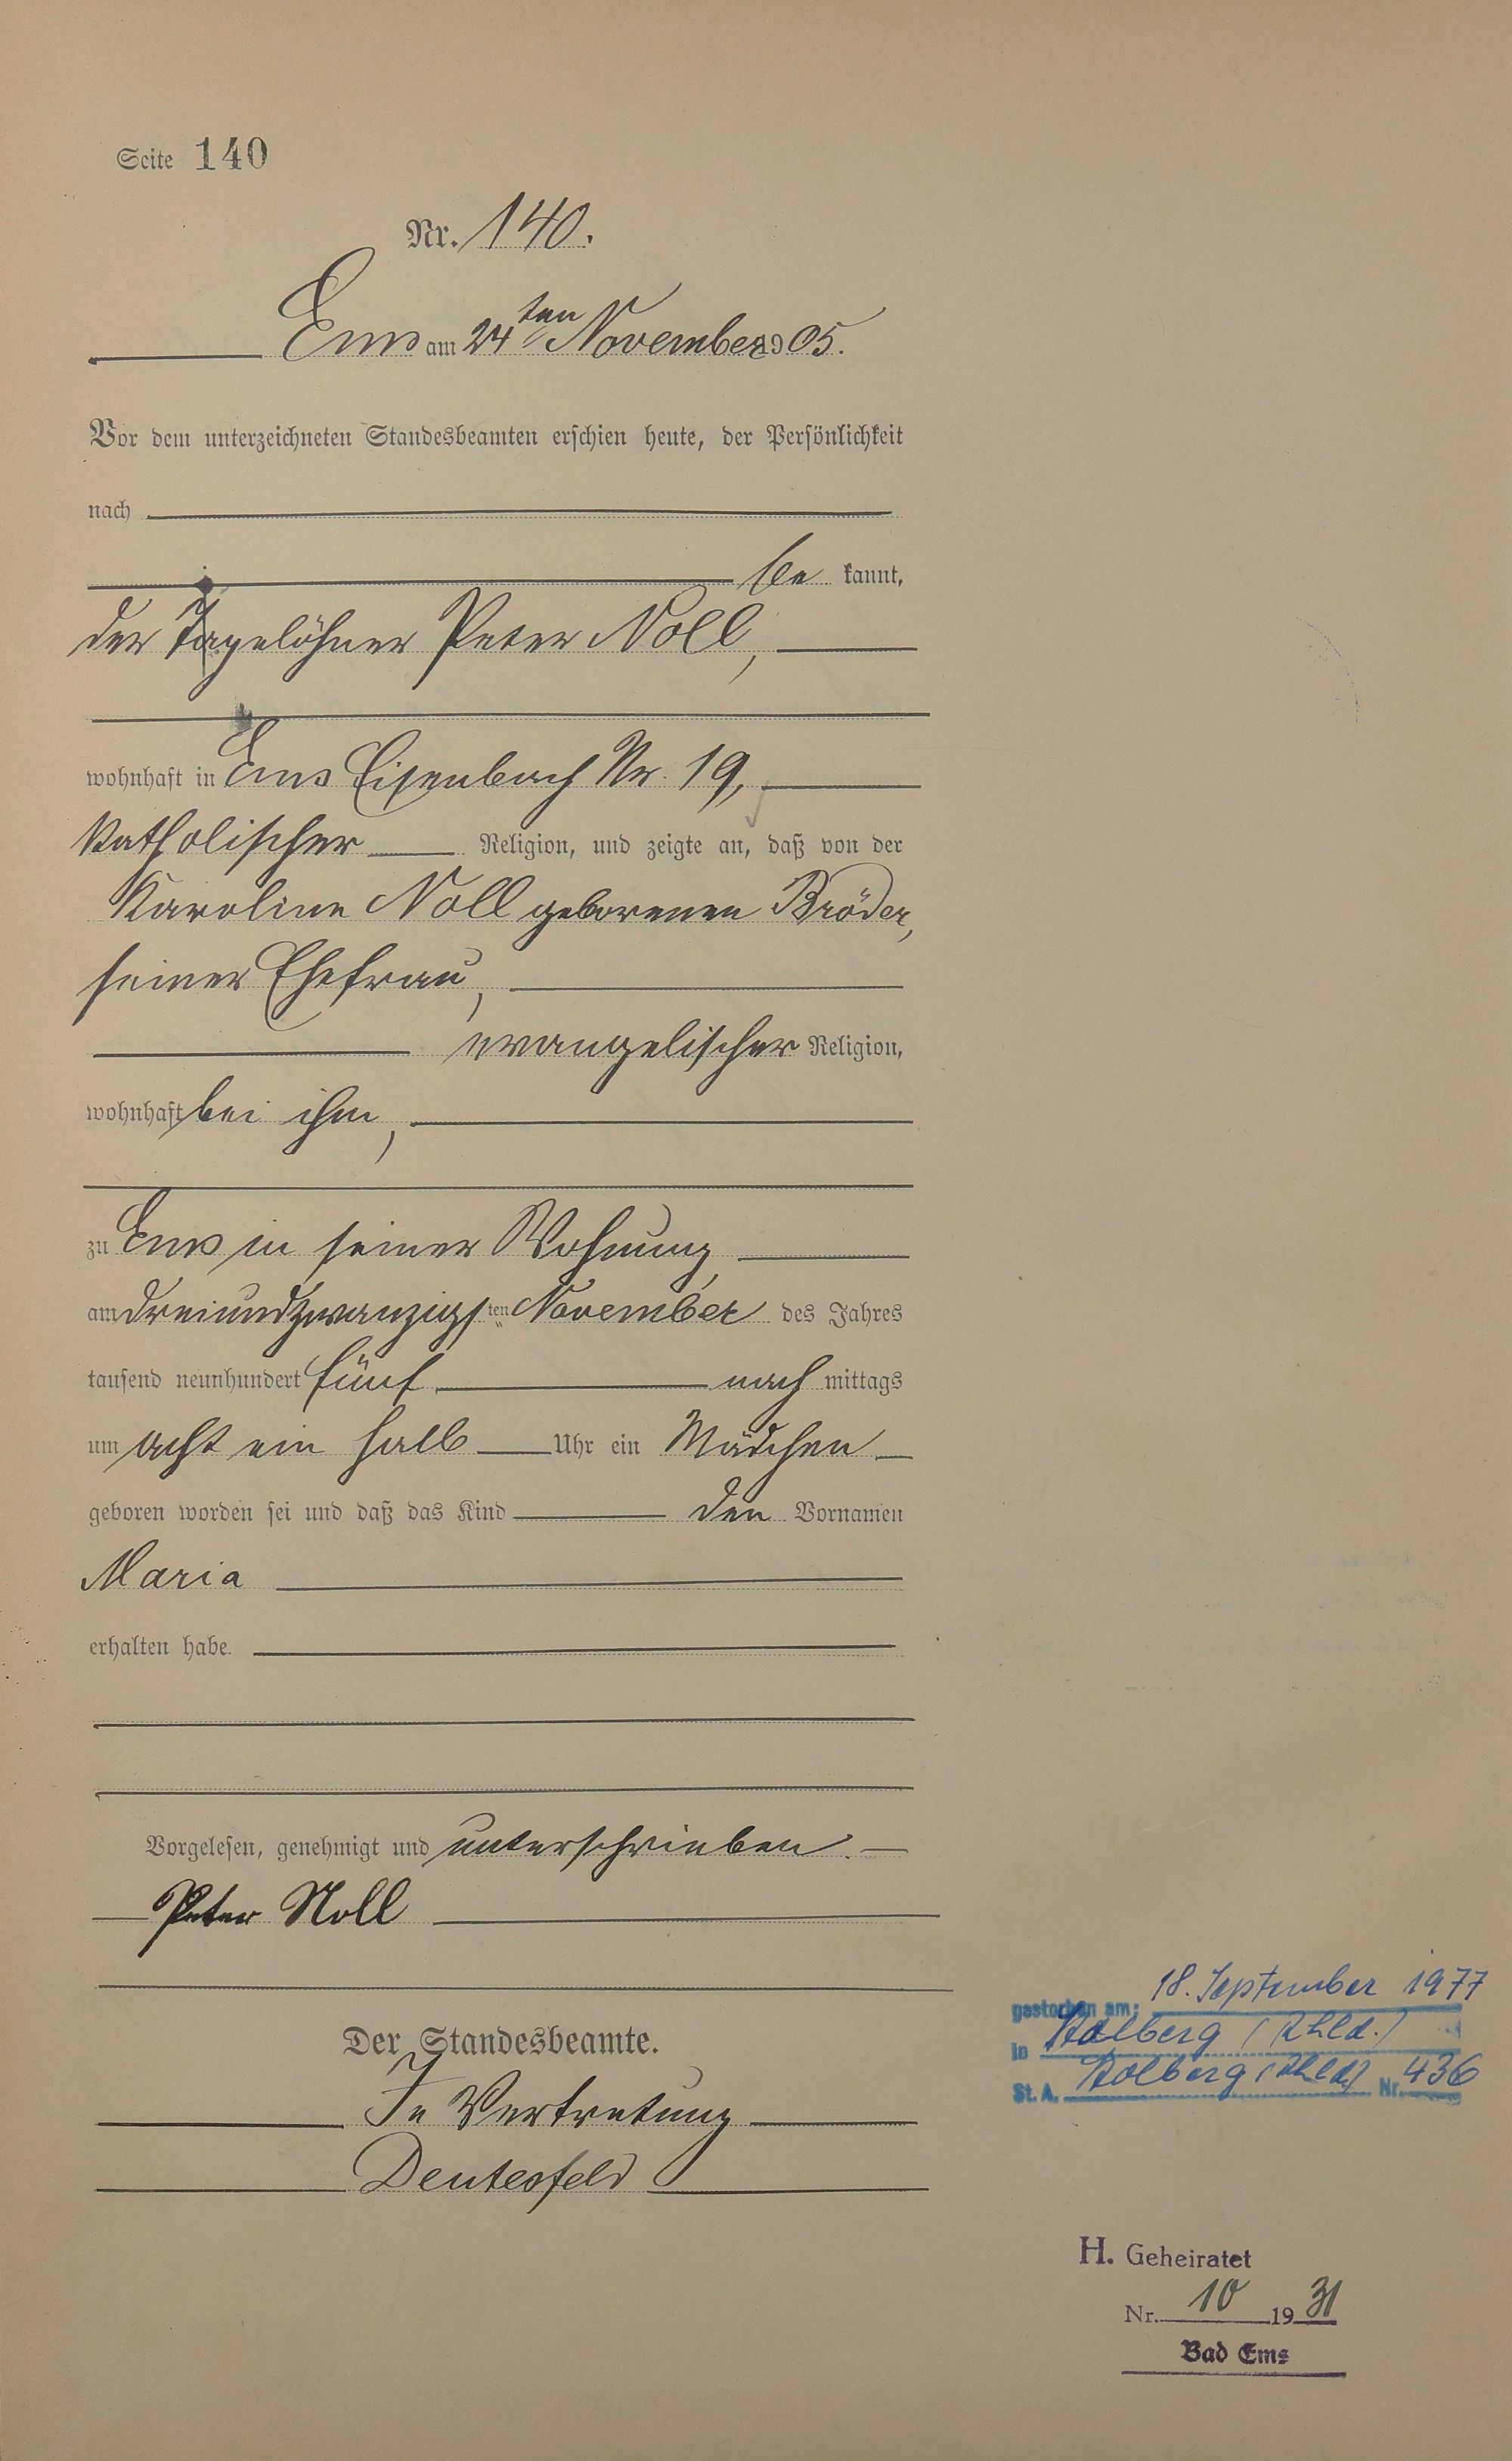 Seite 140
Nr. 140.
Ems am 24ten November 1905.
Vor dem unterzeichneten Standesbeamten erschien heute, der Persönlichkeit
nach
be kannt,
der Tagelöhner Peter Noll,
wohnhaft in Ems Eisenbach Nr. 19,
katholischer Religion, und zeigte an, daß von der
Karoline Noll geborenen Bröder,
seiner Ehefrau,
evangelischer Religion,
wohnhaft bei ihm,
zu Ems in seiner Wohnung,
am dreiundzwanzigsten November des Jahres
tausend neunhundert fünf nach mittags
um acht ein halb Uhr ein Mädchen
geboren worden sei und daß das Kind den Vornamen
Maria
erhalten habe.
Vorgelesen, genehmigt und unterschrieben.
Peter Noll
Der Standesbeamte.
In Vertretung
Deutesfeld
gestorben am: 18. September 1977
in Stolberg (Rhld.)
St. A. Stolberg (Rhld) Nr. 436
H. Geheiratet
Nr. 10 1931
Bad Ems